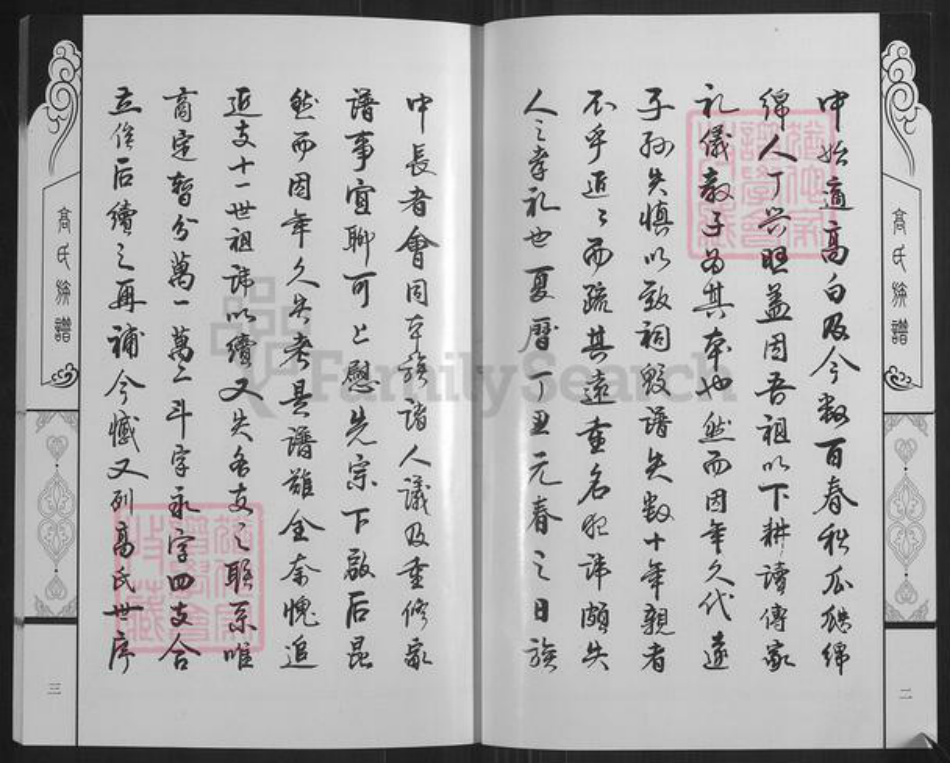 高氏族譜
二
中始適高白及今數百春秋瓜瓞綿
綿人丁興旺蓋因吾祖以下耕讀傳家
礼儀教子為其本也然而因年久代遠
子孫失慎以致祠毀譜失數十年親者
不乎近之而疏其遠重名犯諱頗失
人之孝礼也夏曆丁丑元春之日族
中長者會同本族諸人議及重修家
譜事宜聊可上慰先宗下啟后昆
然而因年久失考其譜難全奈愧追
近支十一世祖諱以續又失各支之聯系唯
商定暫分萬一萬二斗字永字四支合
立俟后續之再補今憾又列高氏世序
高氏族譜
三
FamilySearch